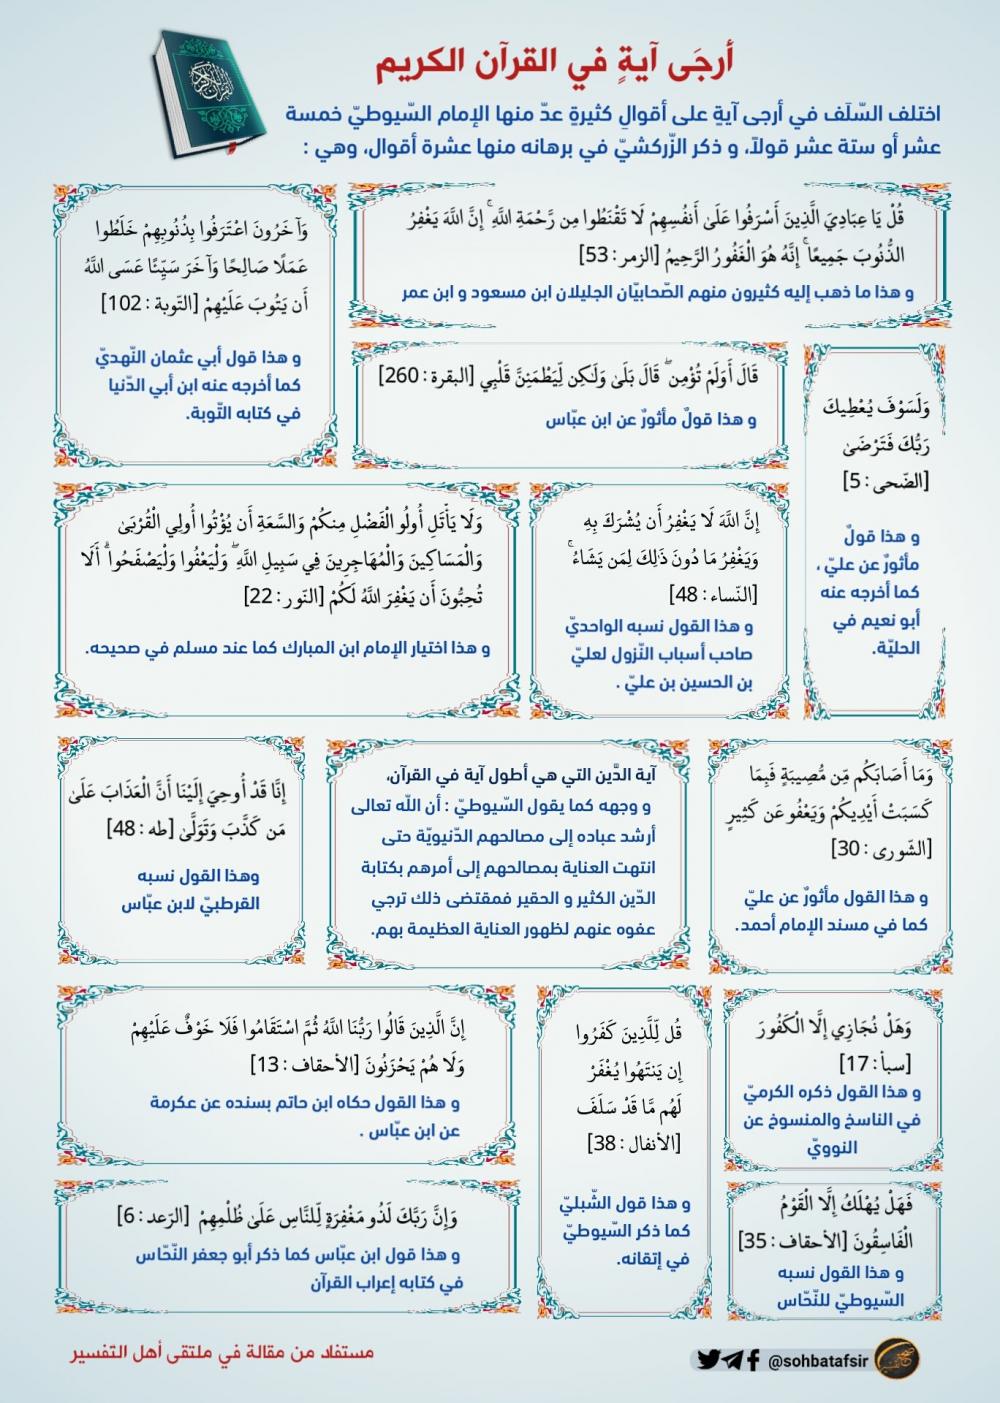 أرجَى آيةٍ في القرآن الكريم
اختلف السّلَف في أرجى آيةٍ على أقوالٍ كثيرةٍ عدّ منها الإمام السّيوطيّ خمسة
عشر أو ستة عشر قولاً، و ذكر الزّركشيّ في برهانه منها عشرة أقوال، وهي :
قُلْ يَا عِبَادِيَ الَّذِينَ أَسْرَفُوا عَلَىٰ أَنفُسِهِمْ لَا تَقْنَطُوا مِن رَّحْمَةِ اللَّهِ ۚ إِنَّ اللَّهَ يَغْفِرُ
الذُّنُوبَ جَمِيعًا ۚ إِنَّهُ هُوَ الْغَفُورُ الرَّحِيمُ [الزمر: 53]
و هذا ما ذهب إليه كثيرون منهم الصّحابيّان الجليلان ابن مسعود و ابن عمر
وَآخَرُونَ اعْتَرَفُوا بِذُنُوبِهِمْ خَلَطُوا
عَمَلًا صَالِحًا وَآخَرَ سَيِّئًا عَسَى اللَّهُ
أَن يَتُوبَ عَلَيْهِمْ [التّوبة : 102]
و هذا قول أبي عثمان النّهديّ
كما أخرجه عنه ابن أبي الدّنيا
في كتابه التّوبة.
وَلَسَوْفَ يُعْطِيكَ
رَبُّكَ فَتَرْضَىٰ
[الضّحى: 5]
و هذا قولٌ
مأثورٌ عن عليّ ،
كما أخرجه عنه
أبو نعيم في
الحليّة.
قَالَ أَوَلَمْ تُؤْمِن ۖ قَالَ بَلَىٰ وَلَٰكِن لِّيَطْمَئِنَّ قَلْبِي [البقرة: 260]
و هذا قولٌ مأثورٌ عن ابن عبّاس
إِنَّ اللَّهَ لَا يَغْفِرُ أَن يُشْرَكَ بِهِ
وَيَغْفِرُ مَا دُونَ ذَٰلِكَ لِمَن يَشَاءُ ۚ
[النّساء: 48]
و هذا القول نسبه الواحديّ
صاحب أسباب النّزول لعليّ
بن الحسين بن عليّ .
وَلَا يَأْتَلِ أُولُو الْفَضْلِ مِنكُمْ وَالسَّعَةِ أَن يُؤْتُوا أُولِي الْقُرْبَىٰ
وَالْمَسَاكِينَ وَالْمُهَاجِرِينَ فِي سَبِيلِ اللَّهِ ۖ وَلْيَعْفُوا وَلْيَصْفَحُوا ۗ أَلَا
تُحِبُّونَ أَن يَغْفِرَ اللَّهُ لَكُمْ [النّور: 22]
و هذا اختيار الإمام ابن المبارك كما عند مسلم في صحيحه.
وَمَا أَصَابَكُم مِّن مُّصِيبَةٍ فَبِمَا
كَسَبَتْ أَيْدِيكُمْ وَيَعْفُو عَن كَثِيرٍ
[الشّورى: 30]
و هذا القول مأثورٌ عن عليّ
كما في مسند الإمام أحمد.
آية الدَّين التي هي أطول آية في القرآن،
و وجهه كما يقول السّيوطيّ : أن اللّه تعالى
أرشد عباده إلى مصالحهم الدّنيويّة حتى
انتهت العناية بمصالحهم إلى أمرهم بكتابة
الدّين الكثير و الحقير فمقتضى ذلك ترجي
عفوه عنهم لظهور العناية العظيمة بهم.
إِنَّا قَدْ أُوحِيَ إِلَيْنَا أَنَّ الْعَذَابَ عَلَىٰ
مَن كَذَّبَ وَتَوَلَّىٰ [طه : 48]
وهذا القول نسبه
القرطبيّ لابن عبّاس
وَهَلْ نُجَازِي إِلَّا الْكَفُورَ
[سبأ: 17]
و هذا القول ذكره الكرميّ
في الناسخ والمنسوخ عن
النوويّ
قُل لِّلَّذِينَ كَفَرُوا
إِن يَنتَهُوا يُغْفَرْ
لَهُم مَّا قَدْ سَلَفَ
[الأنفال : 38]
و هذا قول الشّبليّ
كما ذكر السّيوطيّ
في إتقانه.
إِنَّ الَّذِينَ قَالُوا رَبُّنَا اللَّهُ ثُمَّ اسْتَقَامُوا فَلَا خَوْفٌ عَلَيْهِمْ
وَلَا هُمْ يَحْزَنُونَ [الأحقاف : 13]
و هذا القول حكاه ابن حاتم بسنده عن عكرمة
عن ابن عبّاس .
فَهَلْ يُهْلَكُ إِلَّا الْقَوْمُ
الْفَاسِقُونَ [الأحقاف : 35]
و هذا القول نسبه
السّيوطيّ للنّحّاس
وَإِنَّ رَبَّكَ لَذُو مَغْفِرَةٍ لِّلنَّاسِ عَلَىٰ ظُلْمِهِمْ [الرّعد: 6]
و هذا قول ابن عبّاس كما ذكر أبو جعفر النّحّاس
في كتابه إعراب القرآن
@sohbatafsir
مستفاد من مقالة في ملتقى أهل التفسير